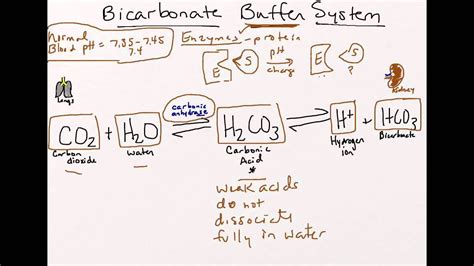 Bicarbonate Buffer System
Normal
Blood pH = 7.35 - 7.45
7.4
Enzymes - protein
E S pH change E S ?
Lungs
Kidney
carbonic anhydrase
CO2 + H2O ⇌ H2CO3 ⇌ H+ + HCO3
Carbon dioxide
Water
Carbonic Acid
Hydrogen ion
Bicarbonate
*
weak acids
do not
dissociate
fully in water